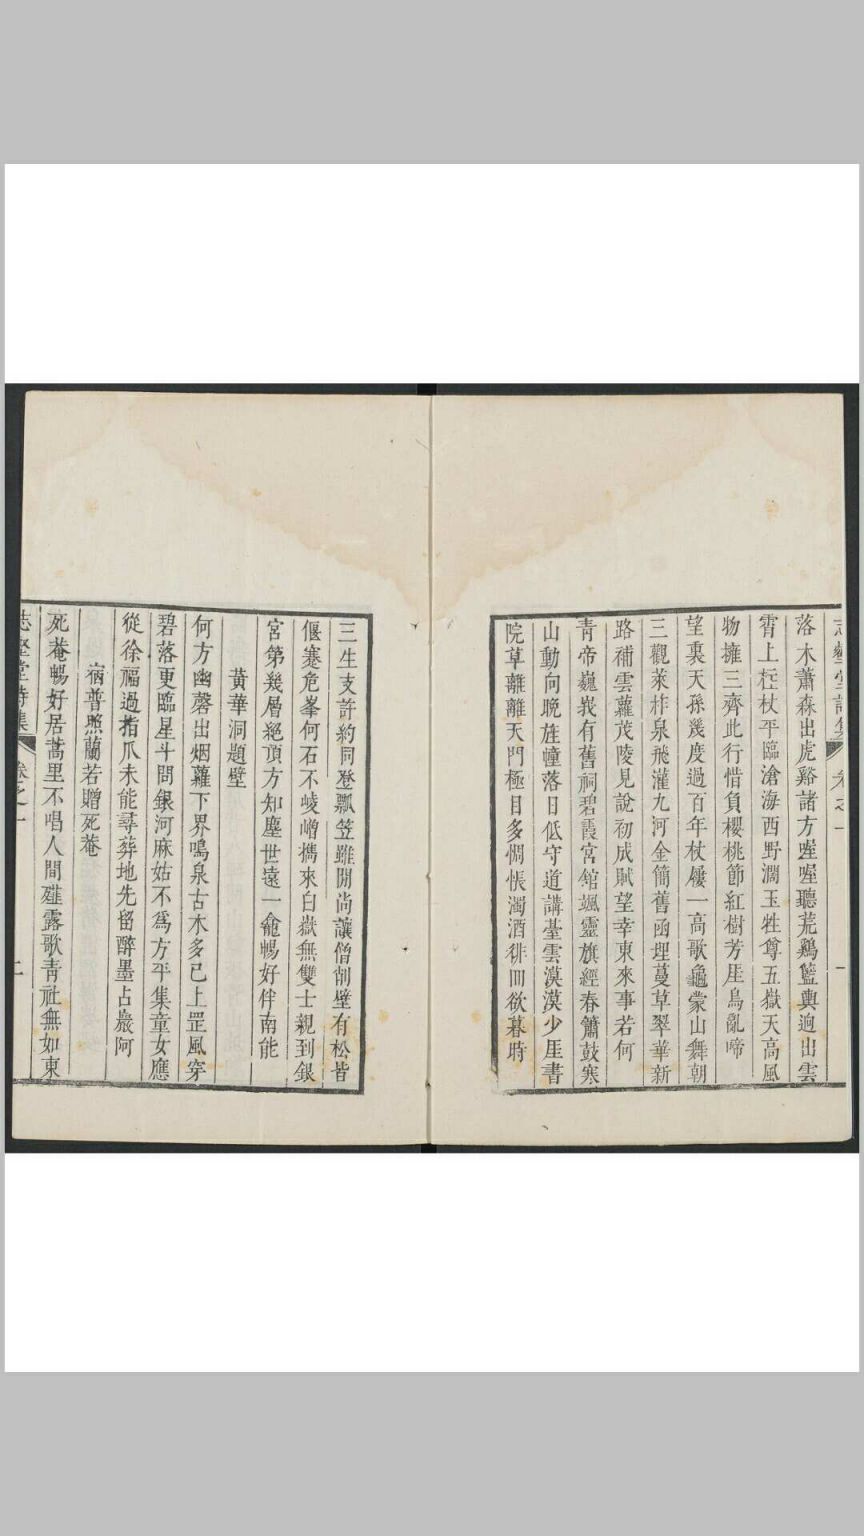 落木蕭森出虎谿諸方喔喔聽荒鷄籃輿迥出雲
霄上拄杖平臨滄海西野澗玉牲尊五嶽天高風
物擁三齊此行惜負櫻桃節紅樹芳厓鳥亂啼
望裏天孫幾度過百年杖屨一高歌龜蒙山舞朝
三觀萊柞泉飛灌九河金簡舊函埋蔓草翠華新
路補雲蘿茂陵見說初成賦望幸東來事若何
青帝巍峩有舊祠碧霞宮館颯靈旗經春簫鼓寒
山動向晚旌幢落日低守道講臺雲漠漠少厓書
院草離離天門極目多惆悵濁酒徘徊欲暮時
三生支許約同登瓢笠雖閒尚讓僧削壁有松皆
偃蹇危峯何石不崚嶒攜來白嶽無雙士親到銀
宮第幾層絕頂方知塵世遠一龕暢好伴南能
黃華洞題壁
何方幽磬出烟蘿下界鳴泉古木多已上罡風穿
碧落更臨星斗問銀河麻姑不為方平集童女應
從徐福過指爪未能尋葬地先留醉墨占巖阿
病普照蘭若贈死菴
死菴暢好居蒿里不唱人間薤露歌青社無如東
志壑堂詩集 卷之一 二